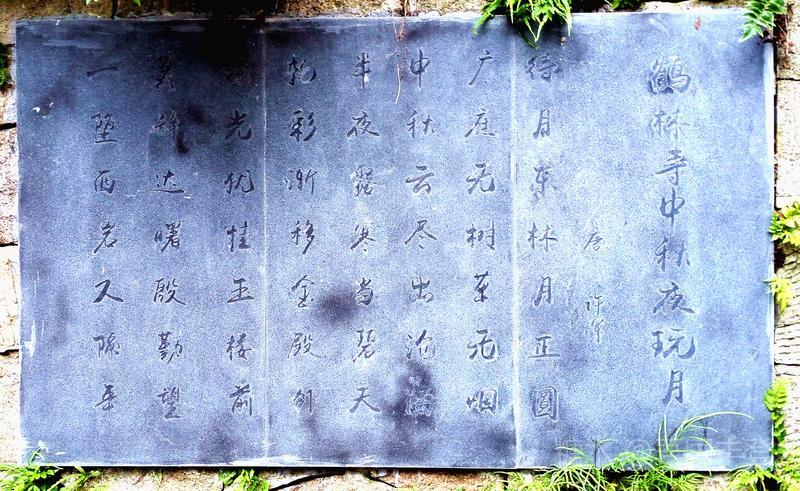 鹤林寺中秋夜玩月
唐 许浑
待月东林月正圆
广庭无树草无烟
中秋云尽出沧海
半夜露寒当碧天
轮彩渐移金殿外
镜光犹挂玉楼前
莫辞达曙殷勤望
一堕西岩又隔年